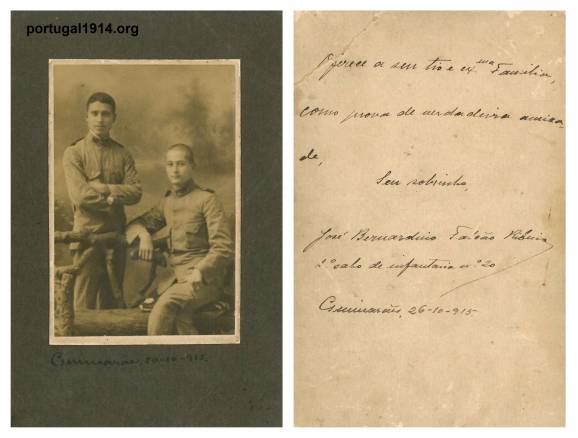 portugal1914.org
Guimarães, 20-10-915.
Oferece a seu tio e ex.ma Familia,
como prova de verdadeira amiza-
de,
Seu sobrinho,
José Bernardino Falcão Ribeiro
2º cabo de infantaria nº 20
Guimarães, 26-10-915-